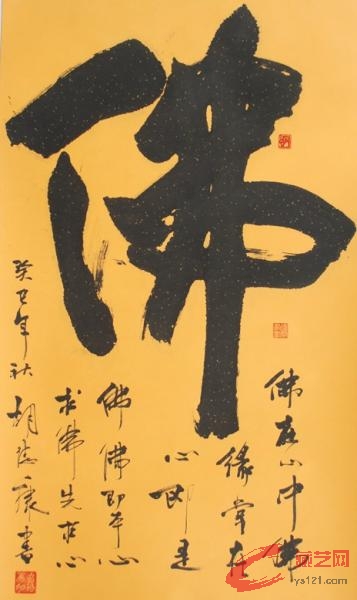 佛
佛在心中佛
缘常在
心即是
佛佛即本心
求佛先求心
癸巳年秋 胡书
艺网
ys121.com